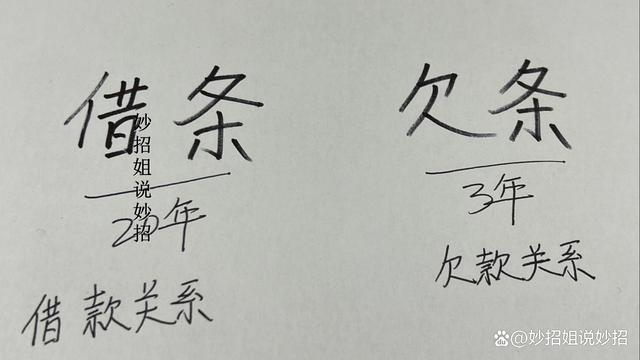 借条
20年
借款关系
欠条
3年
欠款关系
妙招姐说妙招
@妙招姐说妙招